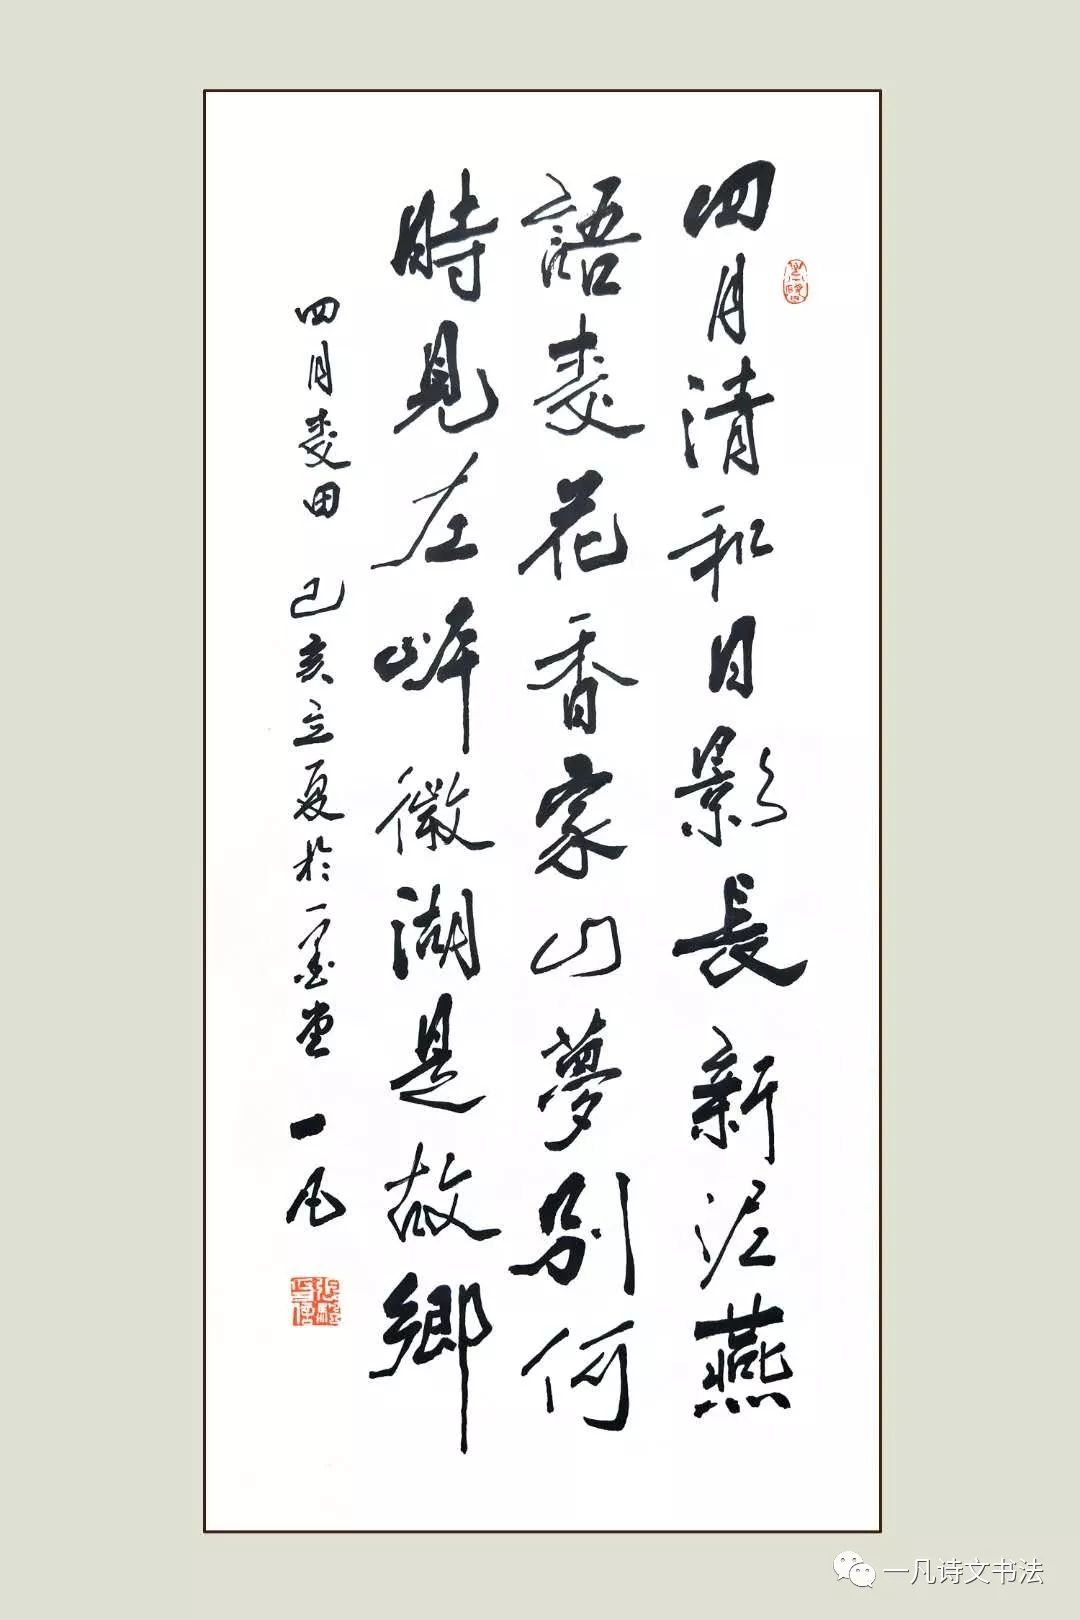 四月清和日影長新泥燕
語麦花香家山夢别何
時見左岸微湖是故鄉
四月麦田 己亥立夏於一墨堂 一凡
一凡诗文书法